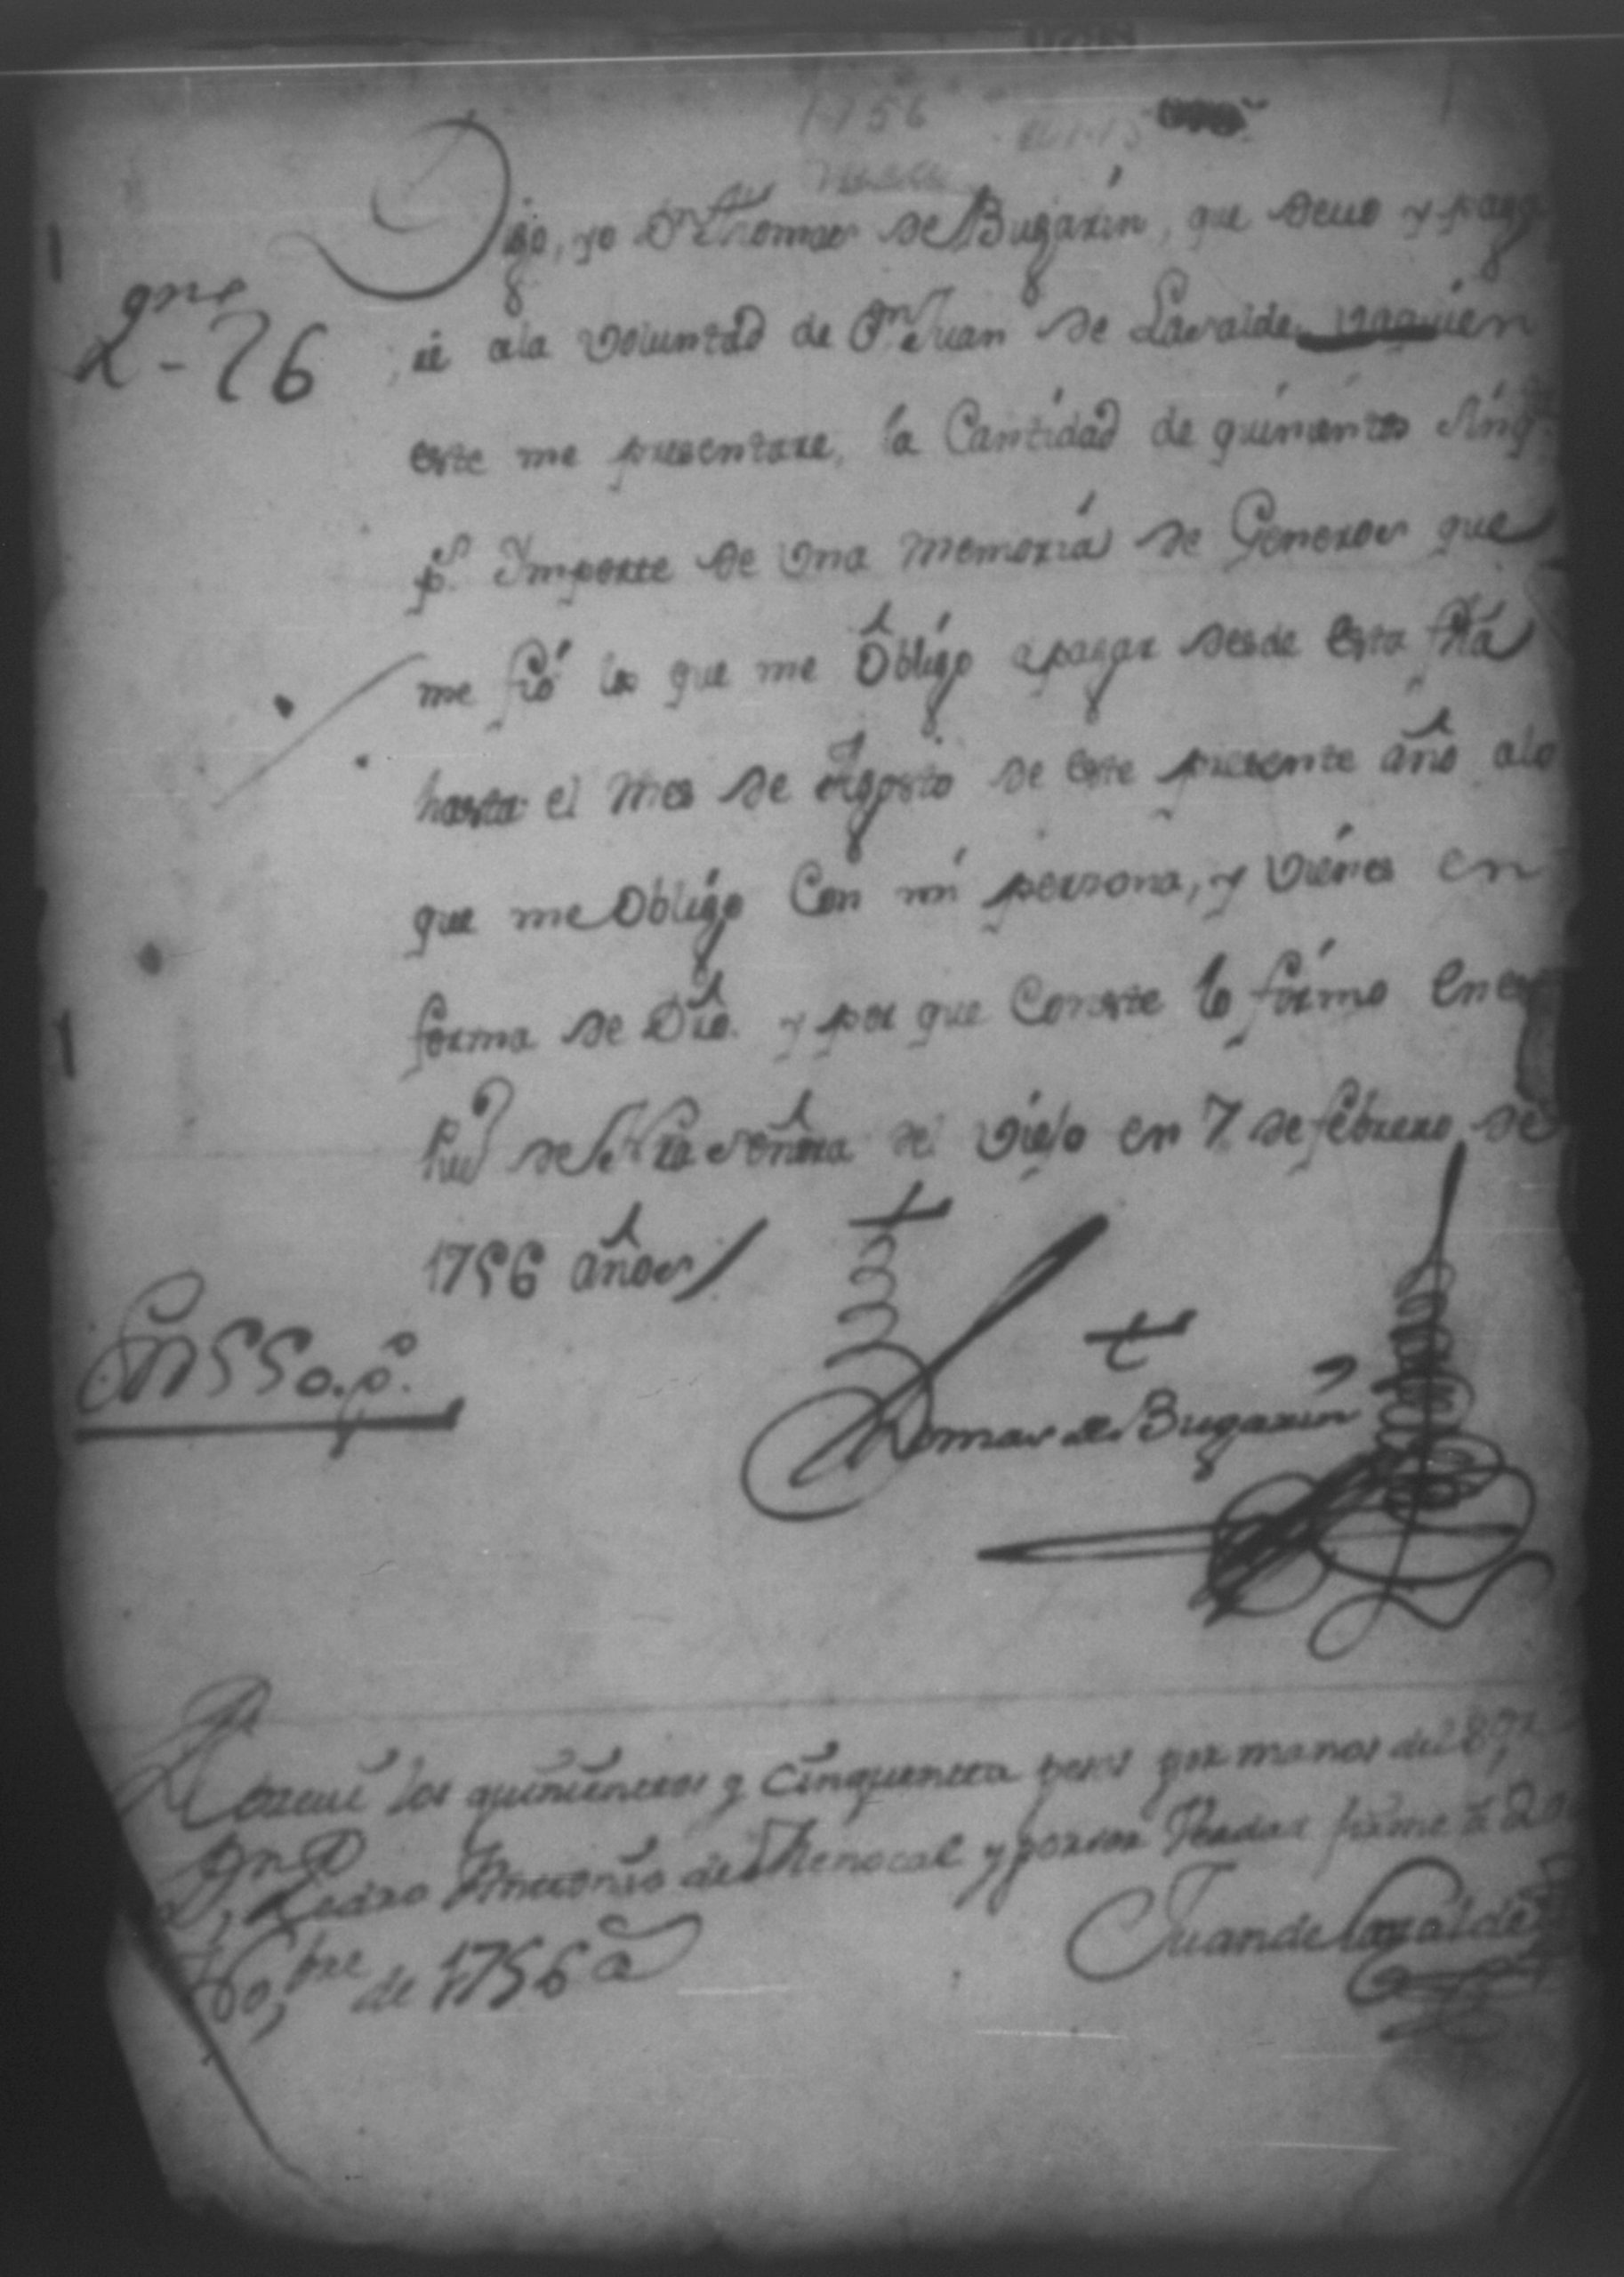 1756
Digo, yo Dn Thomas de Bugarin, que Devo y paga
ré ala Voluntad de Dn Juan de Lavalde, quien
este me presentare, la Cantidad de quinientos Sinq.ta
ps. Ymporte de Una Memoria de Generos que
me fió los que me Obligo apagar desde Esta fha
hasta el Mes de Agosto de Este presente año alo
que me Obligo Con mi persona, y Vienes en
forma de Dro. y por que Conste lo firmo En
de Nra Señora del Viejo en 7 de febrero de
1756 años
Son 550. ps.
Tomas de Bugarin
Rezeui los quinientos y cinquenta pesos por manos del
Dn Pedro Antonio de Menocal y por ser Verdad firme
bre de 1756 a
Juan de Lavalde